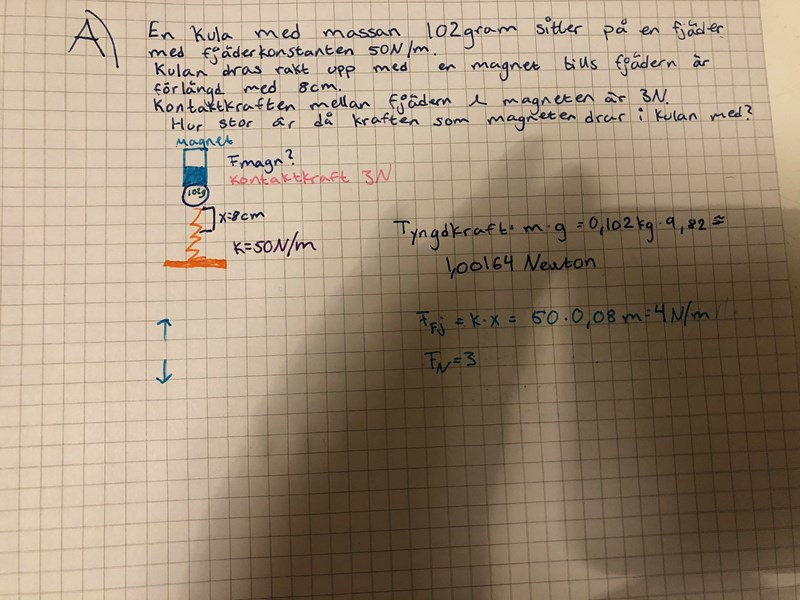 A)
En kula med massan 102gram sitter på en fjäder
med fjäderkonstanten 50N/m.
Kulan dras rakt upp med en magnet tills fjädern är
förlängd med 8cm.
Kontaktkraften mellan fjädern & magneten är 3N.
Hur stor är då kraften som magneten drar i kulan med?
Magnet
Fmagn?
Kontaktkraft 3N
102g
x=8cm
K=50N/m
Tyngdkraft= m·g = 0,102kg·9,82≈
1,00164 Newton
F_Fj = K·x = 50·0,08m=4N/m
F_N=3